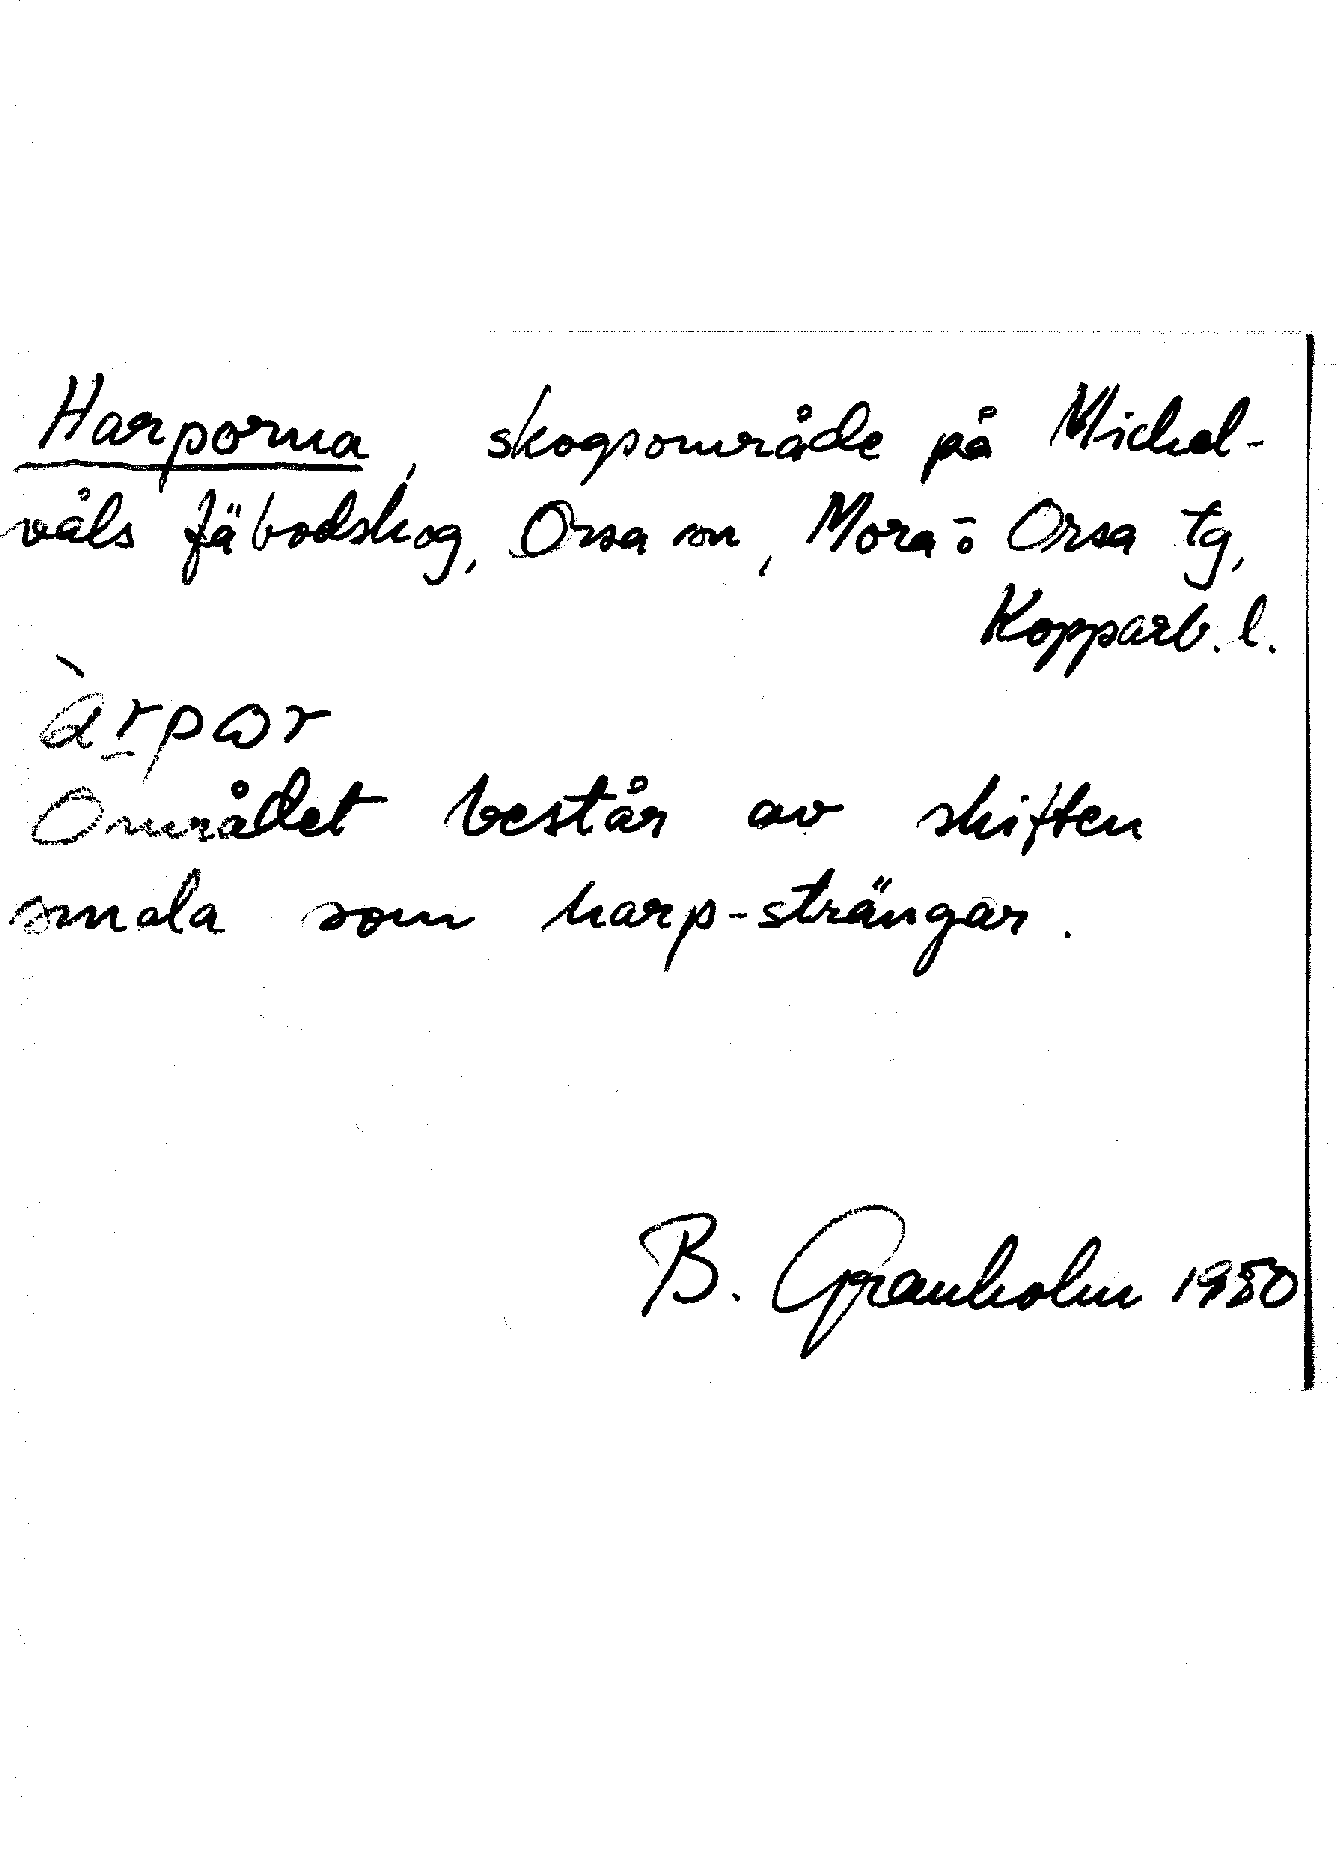 Harporna, skogsområde på Michel-
våls fäbodskog, Orsa sn, Mora- o Orsa tg,
Kopparb. l.
àrpωr
Området består av skiften
smala som harp-strängar.
B. Granholm 1980